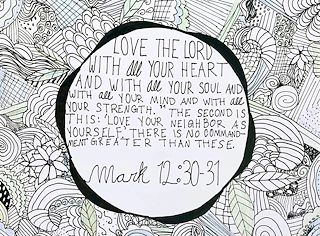 LOVE THE LORD
WITH all YOUR HEART
AND WITH all YOUR SOUL AND
WITH all YOUR MIND AND WITH all
YOUR STRENGTH." THE SECOND IS
THIS: 'LOVE YOUR NEIGHBOR AS
YOURSELF.' THERE IS NO COMMAND-
MENT GREATER THAN THESE.
Mark 12:30-31